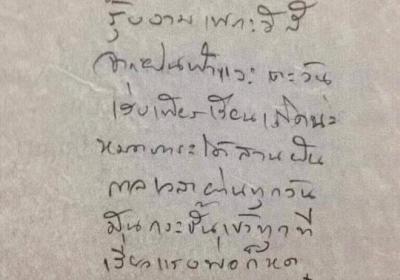 รุ้งงามเพราะ
จากฝนฟ้าและตะวัน
เร่งเพียรเรียนเถิดนะ
หมดภาระได้สานฝัน
กาลเวลาผ่านทุกวัน
มันกระชั้นเข้าทุกที
เรี่ยวแรงพ่อก็หด